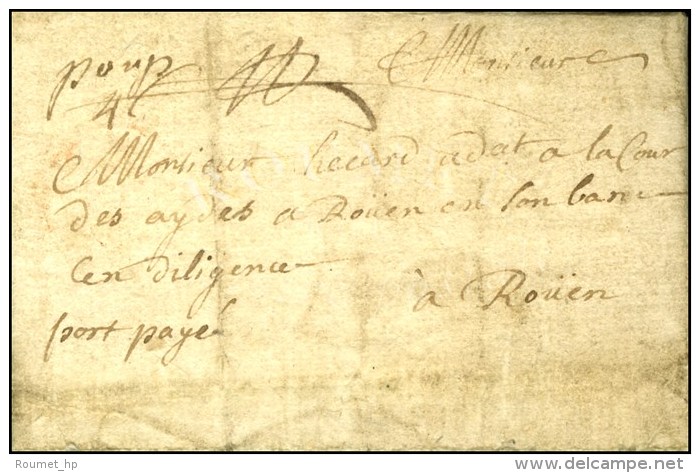 Monsieur
4
Monsieur hecard adat a la Cour
des aydes a Roüen en son banc
en diligence
à Roüen
port payé
Roumet_hp
www.delcampe.net